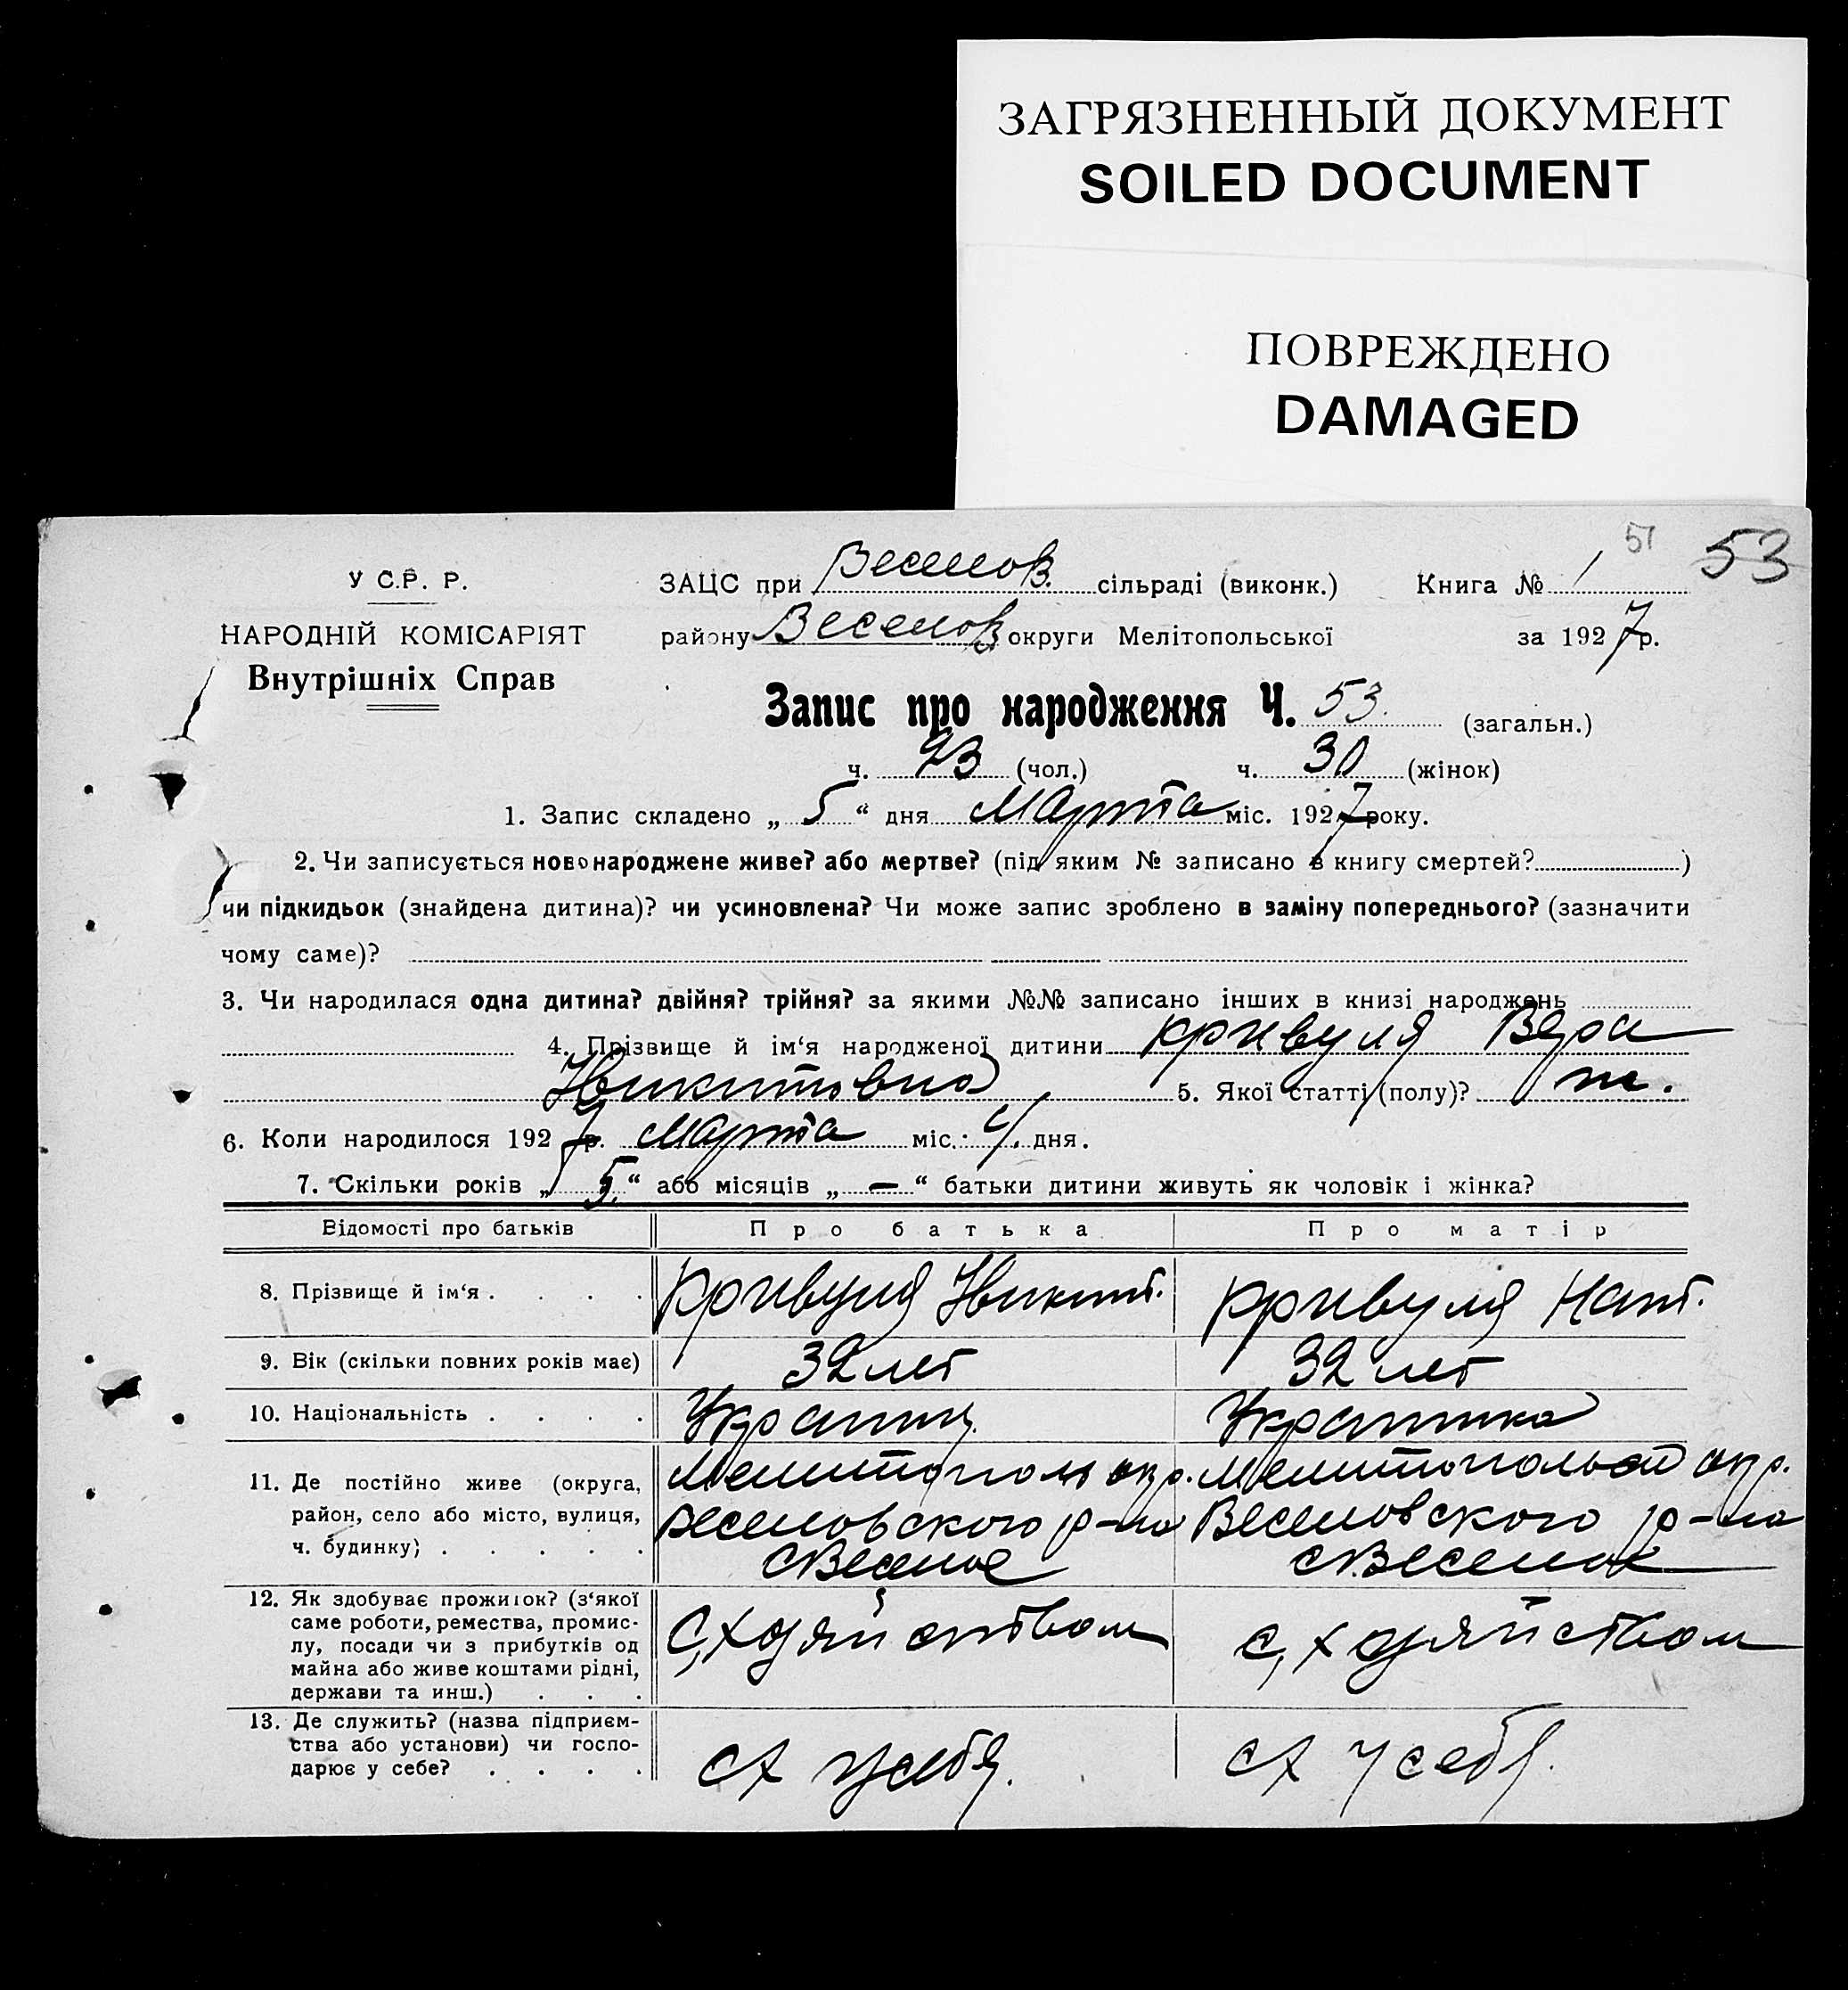 ЗАГРЯЗНЕННЫЙ ДОКУМЕНТ
SOILED DOCUMENT
ПОВРЕЖДЕНО
DAMAGED
51 53
У С.Р. Р.
ЗАЦС при Веселов. сільраді (виконк.) Книга № 1
НАРОДНІЙ КОМІСАРІЯТ
району Веселов округи Мелітопольської за 1927 р.
Внутрішніх Справ
Запис про народження Ч. 53. (загальн.)
ч. 23 (чол.) ч. 30 (жінок)
1. Запис складено „ 5 “ дня Марта міс. 1927 року.
2. Чи записується новонароджене живе? або мертве? (під яким № записано в книгу смертей? )
чи підкидьок (знайдена дитина)? чи усиновлена? Чи може запис зроблено в заміну попереднього? (зазначити
чому саме)?
3. Чи народилася одна дитина? двійня? трійня? за якими №№ записано інших в книзі народжень
4. Прізвище й ім‘я народженої дитини Кривуля Вера
Никитовна 5. Якої статті (полу)? ж.
6. Коли народилося 1927 р. Марта міс. дня.
7. Скільки років „ 5. “ або місяців „ — “ батьки дитини живуть як чоловік і жінка?
Відомості про батьків Про батька Про матір
8. Прізвище й ім‘я . . . . Кривуля Никит. Кривуля Нат.
9. Вік (скільки повних років має) 32 лет 32 лет
10. Національність . . . . Украинц. Украинка
11. Де постійно живе (округа, Мелитополь окр. Мелитопольск окр.
район, село або місто, вулиця, Веселовского р-на Веселовского р-на
ч. будинку) . . . . . с Веселое с Веселое
12. Як здобуває прожиток? (з‘якої
саме роботи, ремества, промис-
лу, посади чи з прибутків од С, хозяйством с, хозяйством
майна або живе коштами рідні,
держави та инш.) . . .
13. Де служить? (назва підприєм-
ства або установи) чи госпо-
дарює у себе? . . . . сх у себя. сх у себя.